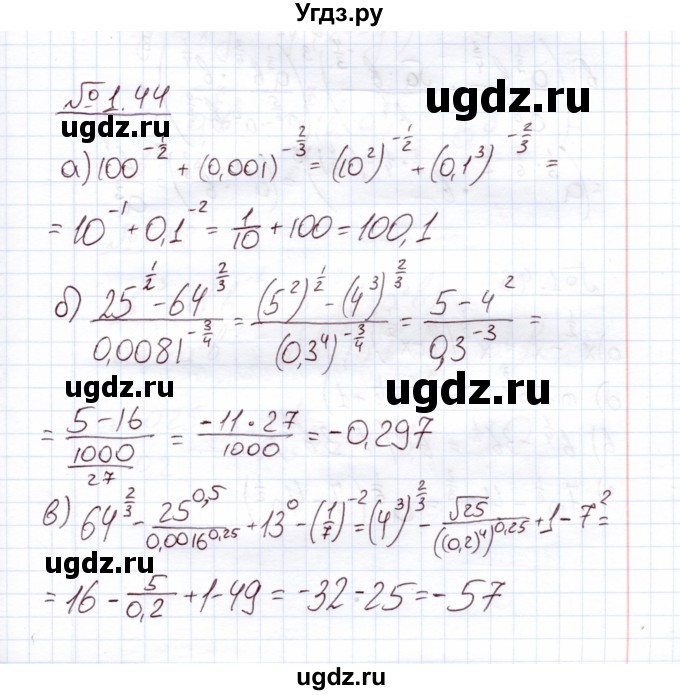 Угдз.ру
№1.44
ugdz.ru
ugdz.ru
а) 100^{-1/2} + (0,001)^{-2/3} = (10²)^{-1/2} + (0,1³)^{-2/3} =
= 10^{-1} + 0,1^{-2} = 1/10 + 100 = 100,1
б) (25^{1/2} - 64^{2/3})/(0,0081^{-3/4}) = ((5²)^{1/2} - (4³)^{2/3})/((0,3⁴)^{-3/4}) = (5 - 4²)/(0,3^{-3}) =
ugdz.ru
ugdz.ru
= (5 - 16)/(1000/27) = (-11 · 27)/1000 = -0,297
в) 64^{2/3} - 25^{0,5}/0,0016^{0,25} + 13⁰ - (1/7)^{-2} = (4³)^{2/3} - √25/((0,2)⁴)^{0,25} + 1 - 7² =
ugdz.ru
= 16 - 5/0,2 + 1 - 49 = -32 - 25 = -57
ugdz.ru
ugdz.ru